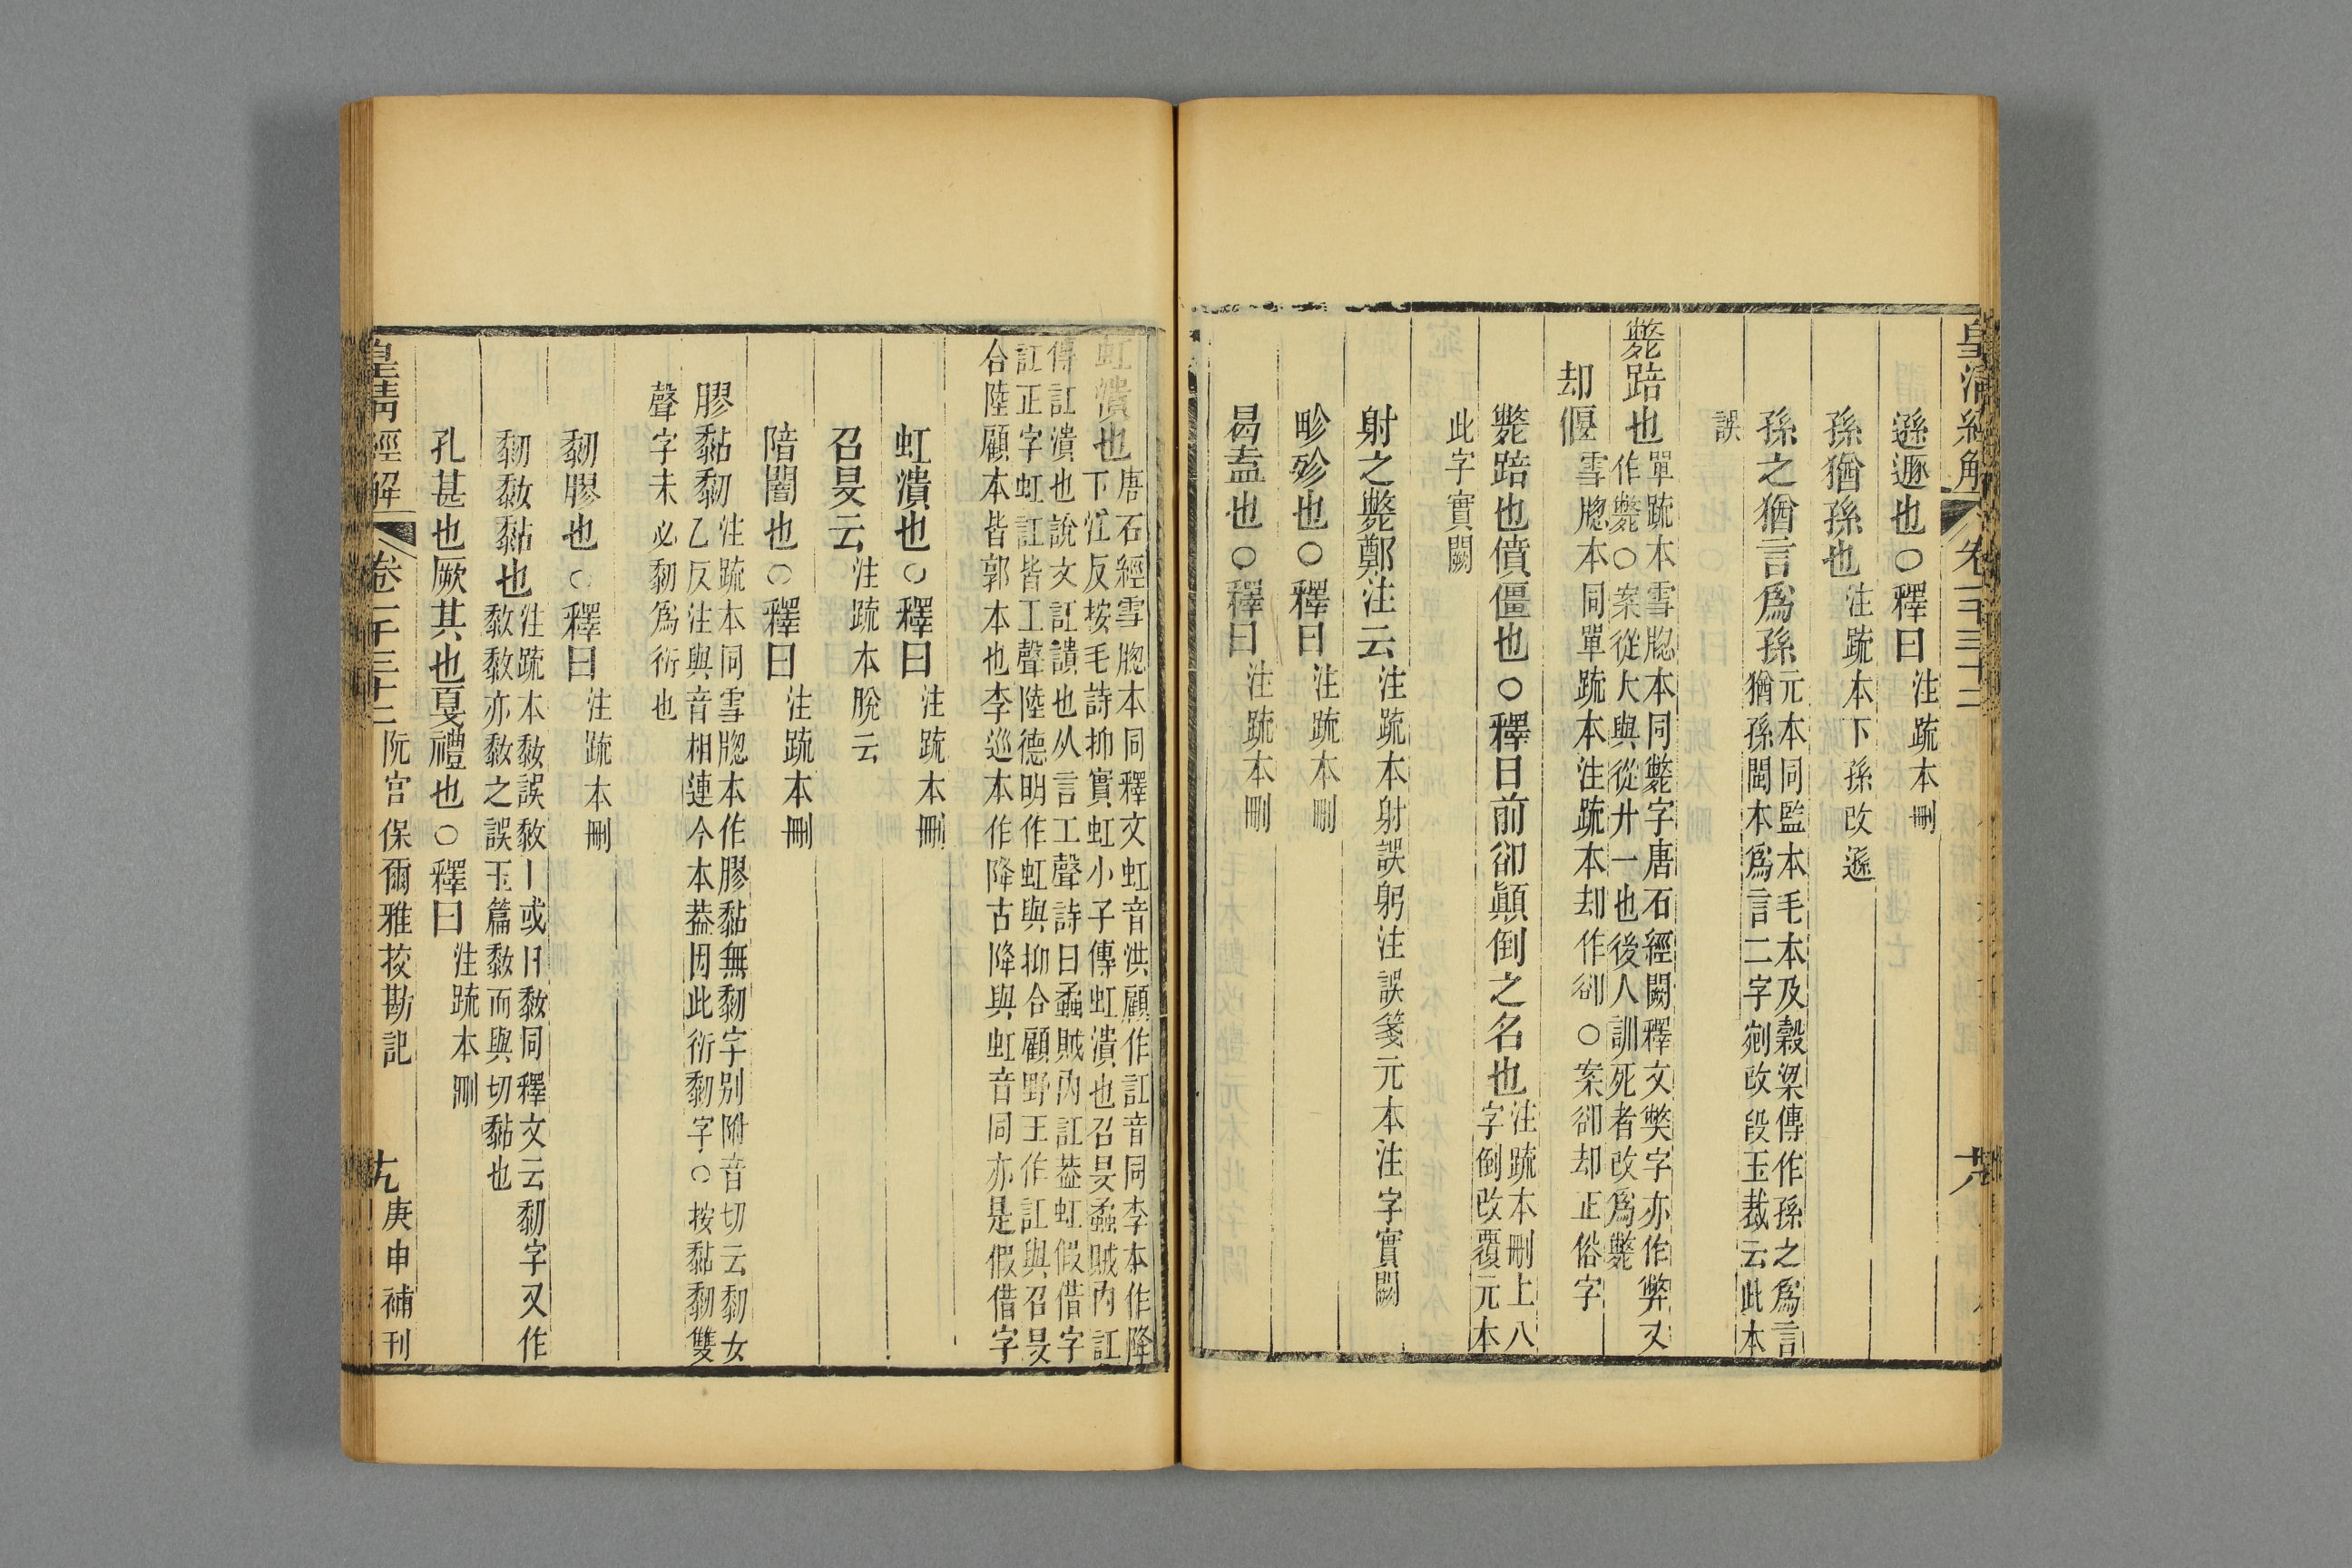 皇清經解 卷一千三十二
遜遯也○釋曰注疏本刪
孫猶孫也注疏本下孫改遜
孫之猶言爲孫元本同監本毛本及穀梁傳作孫之爲言
猶孫閩本爲言二字剜改段玉裁云此本
誤
斃踣也單疏本雪牎本同斃字唐石經闕釋文獘字亦作弊又
作斃○案從犬與從廾一也後人訓死者改爲斃
却偃雪牎本同單疏本注疏本却作卻○案卻却正俗字
斃踣也僨僵也○釋曰前卻顚倒之名也注疏本刪上八
字倒改覆元本
此字實闕
射之斃鄭注云注疏本射誤躬注誤箋元本注字實闕
畛殄也○釋曰注疏本刪
曷盍也○釋曰注疏本刪
虹潰也唐石經雪牎本同釋文虹音洪顧作訌音同李本作降
下江反按毛詩抑實虹小子傳虹潰也召旻蟊賊内訌
傳訌潰也說文訌讃也从言工聲詩曰蟊賊内訌葢虹假借字
訌正字虹訌皆工聲陸德明作虹與抑合顧野王作訌與召旻
合陸顧本皆郭本也李巡本作降古降與虹音同亦是假借字
虹潰也○釋曰注疏本刪
召旻云注疏本脫云
陪闇也○釋曰注疏本刪
膠黏䵒注疏本同雪牎本作膠黏無䵒字别附音切云䵒女
乙反注與音相連今本葢因此衍䵒字○按黏䵒雙
聲字未必䵒爲衍也
䵒膠也○釋曰注疏本刪
䵒䵑黏也注疏本䵑誤敎丨或日䵑同釋文云䵒字又作
䵑䵑亦䵑之誤玉篇䵑而與切黏也
孔甚也厥其也戛禮也○釋曰注疏本刪
皇清經解 卷一千三十二 阮宮保爾雅挍勘記 十九 庚申補刊